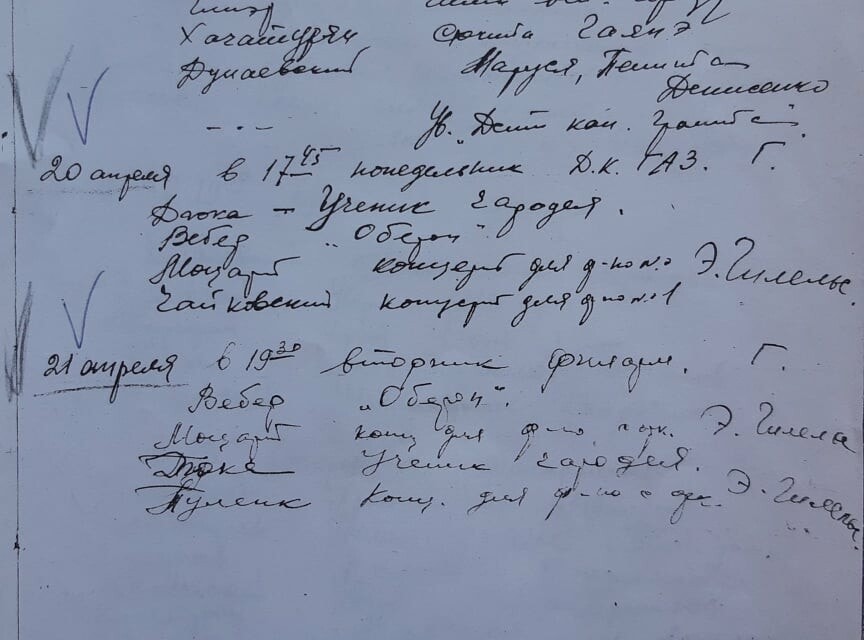 Глиэр
Хачатурян сюита Гаянэ
Дунаевский Маруся, Пепита
Денисенко
Ув. "Дети кап. Гранта".
20 апреля в 17 45 понедельник Д.К. ГАЗ. Г.
Дюка – Ученик чародея.
Вебер "Оберон"
Моцарт концерт для ф-но Э. Гилельс.
Чайковский концерт для ф-но №1
21 апреля в 19 30 вторник филарм. Г.
Вебер "Оберон".
Моцарт конц для ф-но Э. Гилелса
Дюка Ученик чародея.
Пуленк Конц. для ф-но с орк. Э. Гилельс.